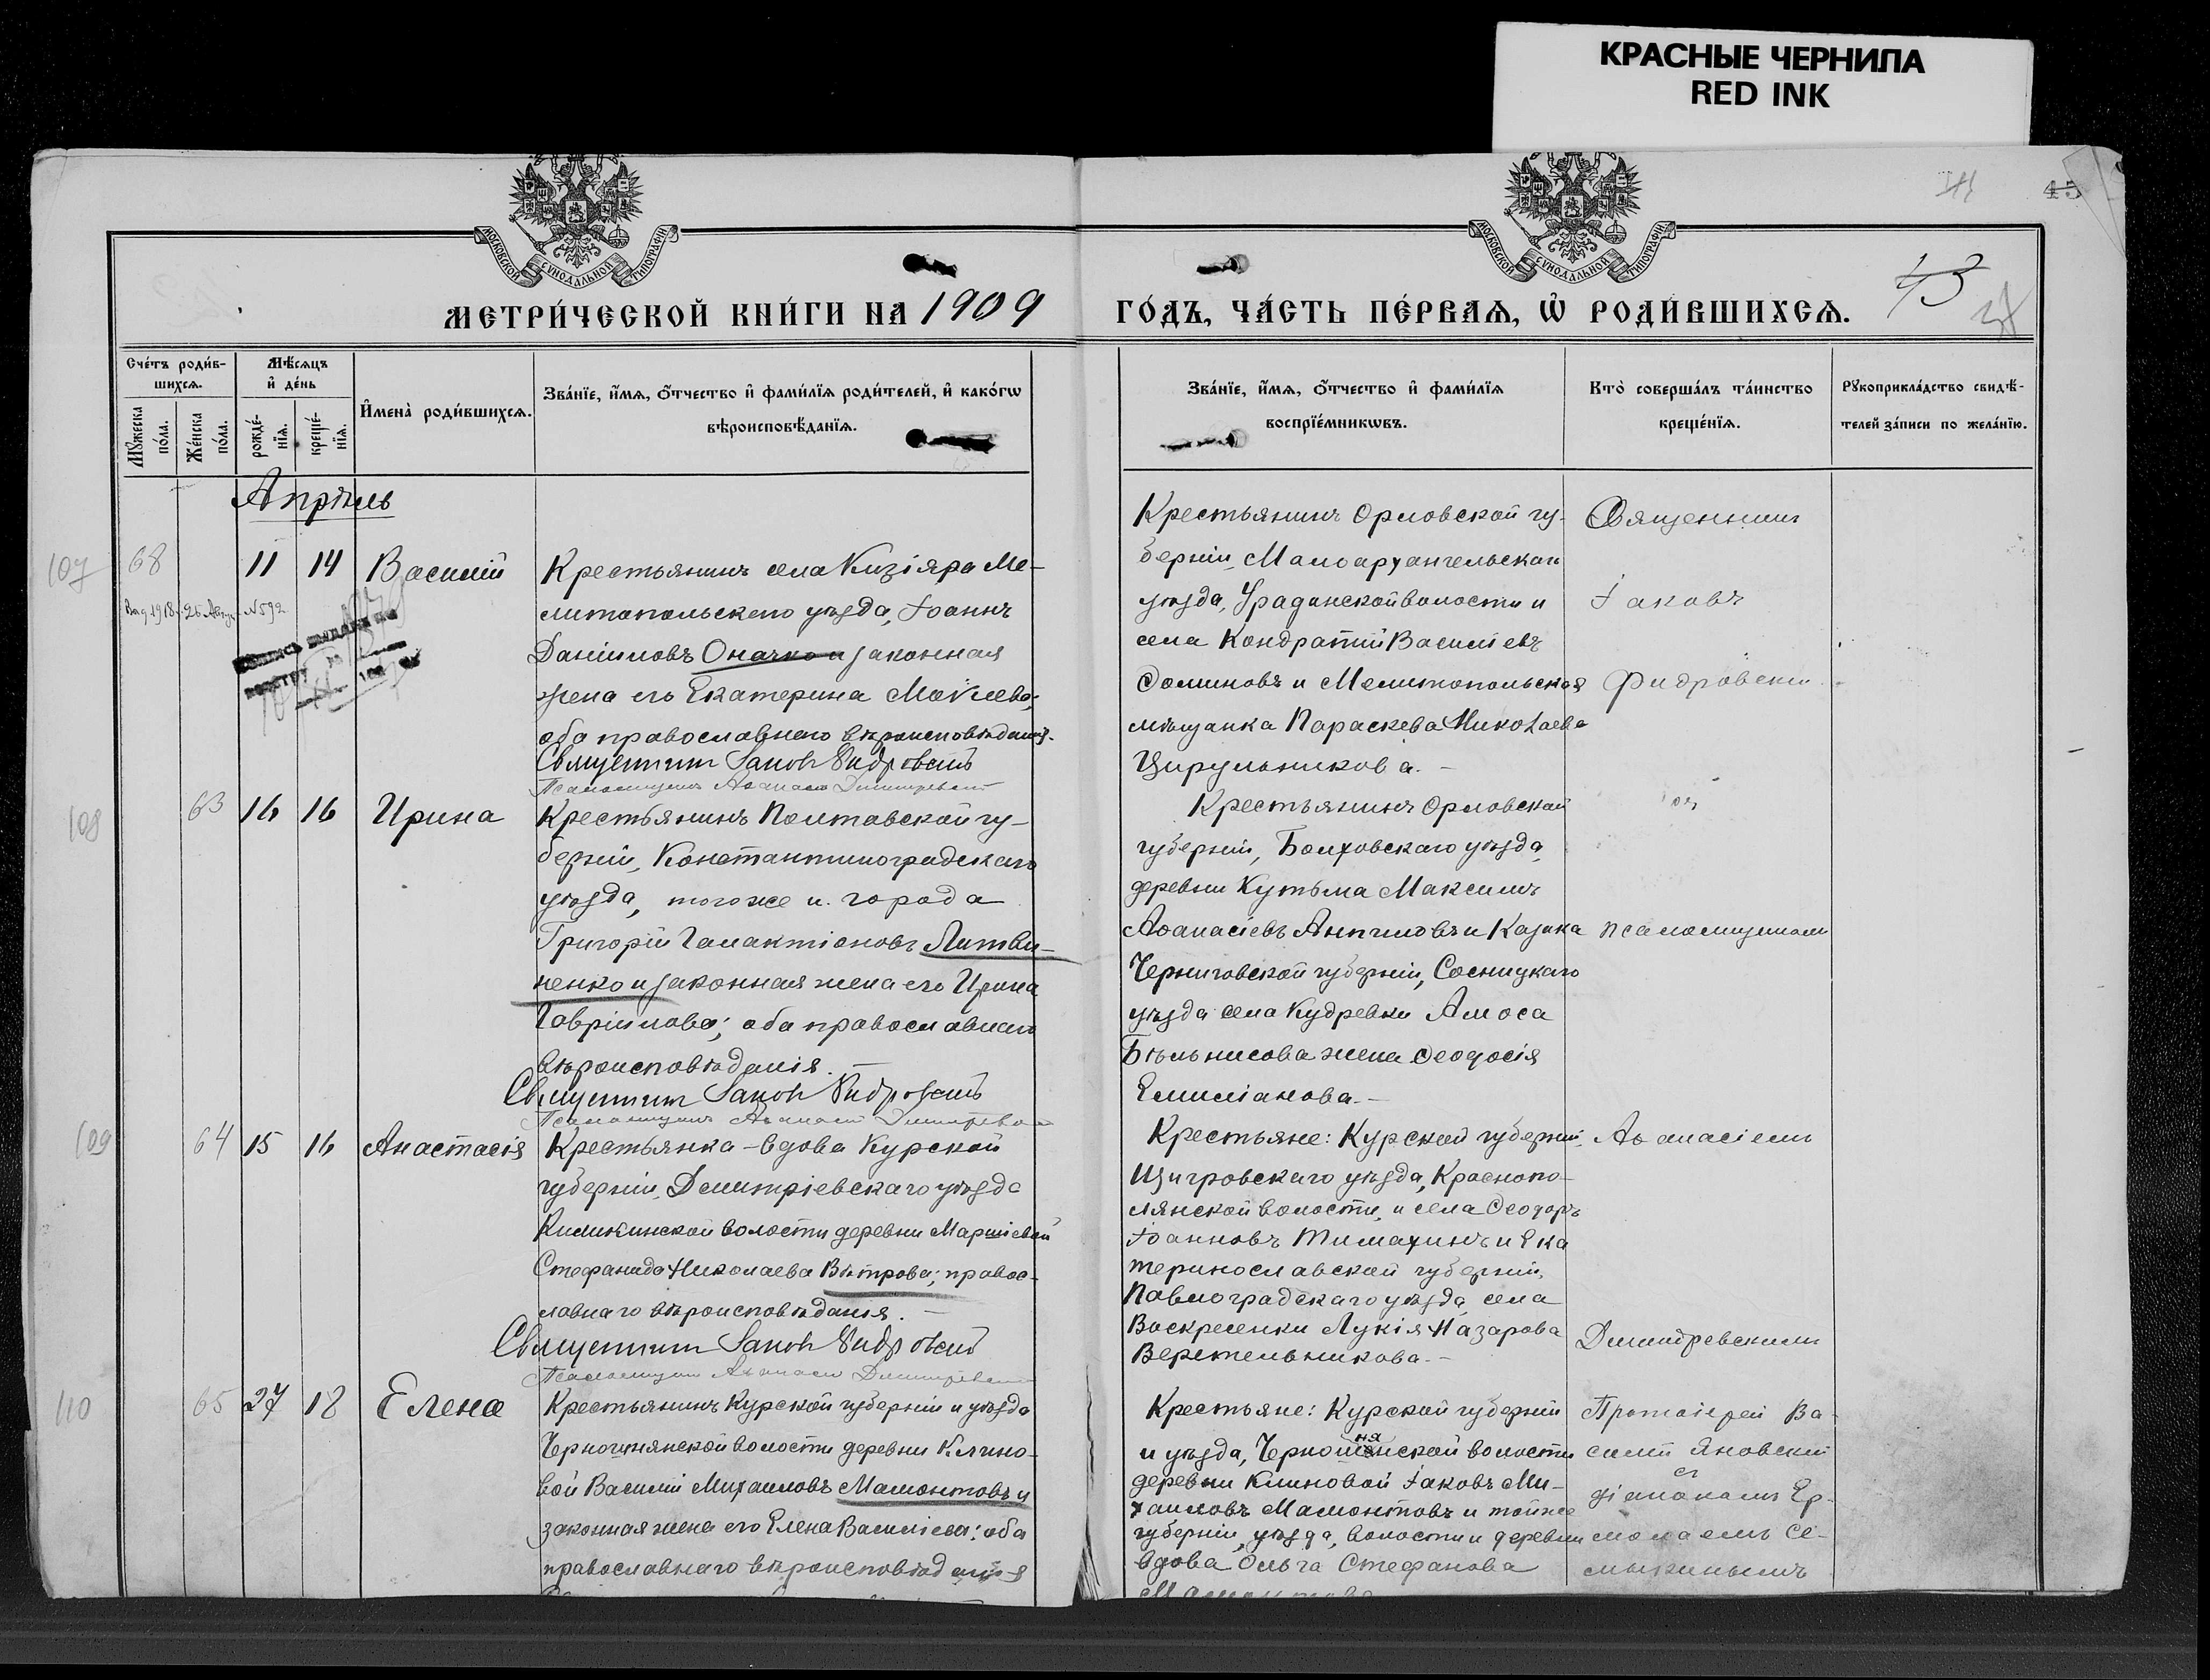 КРАСНЫЕ ЧЕРНИЛА
RED INK
45
МОСКОВСКОЙ СѴНОДАЛЬНОЙ ТИПОГРАФІИ
МОСКОВСКОЙ СѴНОДАЛЬНОЙ ТИПОГРАФІИ
МЕТРИ́ЧЕСКОЙ КНИ́ГИ НА 1909
ГО́ДЪ, ЧА́СТЬ ПЕ́РВАѦ, Ѡ҆ РОДИ́ВШИХСѦ.
43
Сче́тъ роди́в-
шихсѧ.
Мꙋ́жеска
по́ла.
Же́нска
по́ла.
Мѣ́сѧцъ
и҆ де́нь
рожде́-
нїѧ.
креще́-
нїѧ.
И҆мена̀ роди́вшихсѧ.
Зва́нїе, и҆́мѧ, ѻ҆́тчество и҆ фами́лїѧ роди́телей, и҆ како́гѡ
вѣроисповѣ́данїѧ.
Зва́нїе, и҆́мѧ, ѻ҆́тчество и҆ фами́лїѧ
воспрїе́мникѡвъ.
Кто̀ соверша́лъ та́инство
креще́нїѧ.
Рꙋкоприкла́дство свидѣ́-
телей за́писи по жела́нїю.
Апрѣль
107
68
11 14 Василій
Крестьянинъ села Кизіяра Ме-
литопольскаго уѣзда, Іоаннъ
Даніиловъ Оначко и законная
жена его Екатерина
оба православнаго вѣроисповѣданія.
Священникъ Іаковъ Фидровскій
Псаломщикъ Аѳанасій
Крестьянинъ Орловской гу-
берніи, Малоархангельскаго
уѣзда, волости и
села Кондратій Васильевъ
и Мелитопольская
мѣщанка Параскева Николаева
Цирульникова.-
Священникъ
Іаковъ
Фидровскій
№ 592
108
63 16 16 Ирина
Крестьянинъ Полтавской гу-
берніи, Константиноградскаго
уѣзда, того же и города
Григорій Галактіоновъ Литви-
ненко и законная жена его Ирина
Гавріилова; оба православнаго
вѣроисповѣданія.-
Священникъ Іаковъ Фидровскій
Псаломщикъ Аѳанасій
Крестьянинъ Орловской
губерніи, Болховскаго уѣзда,
деревни Кутьма Максимъ
Аѳанасіевъ Антиповъ и Казака
Черниговской губерніи, Сосницкаго
уѣзда села Кудревки Амоса
жена Ѳеодосія
Емиліанова.-
псаломщикомъ
109
64 15 16 Анастасія
Крестьянка-вдова Курской
губерніи, Дмитріевскаго уѣзда
волости деревни
Стефанида Николаева Вѣтрова; правос-
лавнаго вѣроисповѣданія.-
Священникъ Іаковъ Фидровскій
Псаломщикъ Аѳанасій
Крестьяне: Курской губерніи,
Щигровскаго уѣзда, Краснопо-
лянской волости, и села Ѳеодоръ
Іоанновъ Тимахинъ и Ека
теринославской губерніи,
Павлоградскаго уѣзда, села
Воскресенки Лукія Назарова
Веретельникова.-
Аѳанасіемъ
110
65 27 18 Елена
Крестьянинъ Курской губерніи и уѣзда
волости деревни Клино-
вой Василій Михаиловъ Мамонтовъ и
законная жена его Елена Василіева: оба
православнаго вѣроисповѣданія
Крестьяне: Курской губерніи
и уѣзда, волости
деревни Клиновой Іаковъ Ми-
хаиловъ Мамонтовъ и той же
губерніи, уѣзда, волости и деревни
вдова Ольга Стефанова
Протоіерей Ва-
силій Яновскій
съ
діакономъ Ер-
молаемъ Се-
мыкинымъ